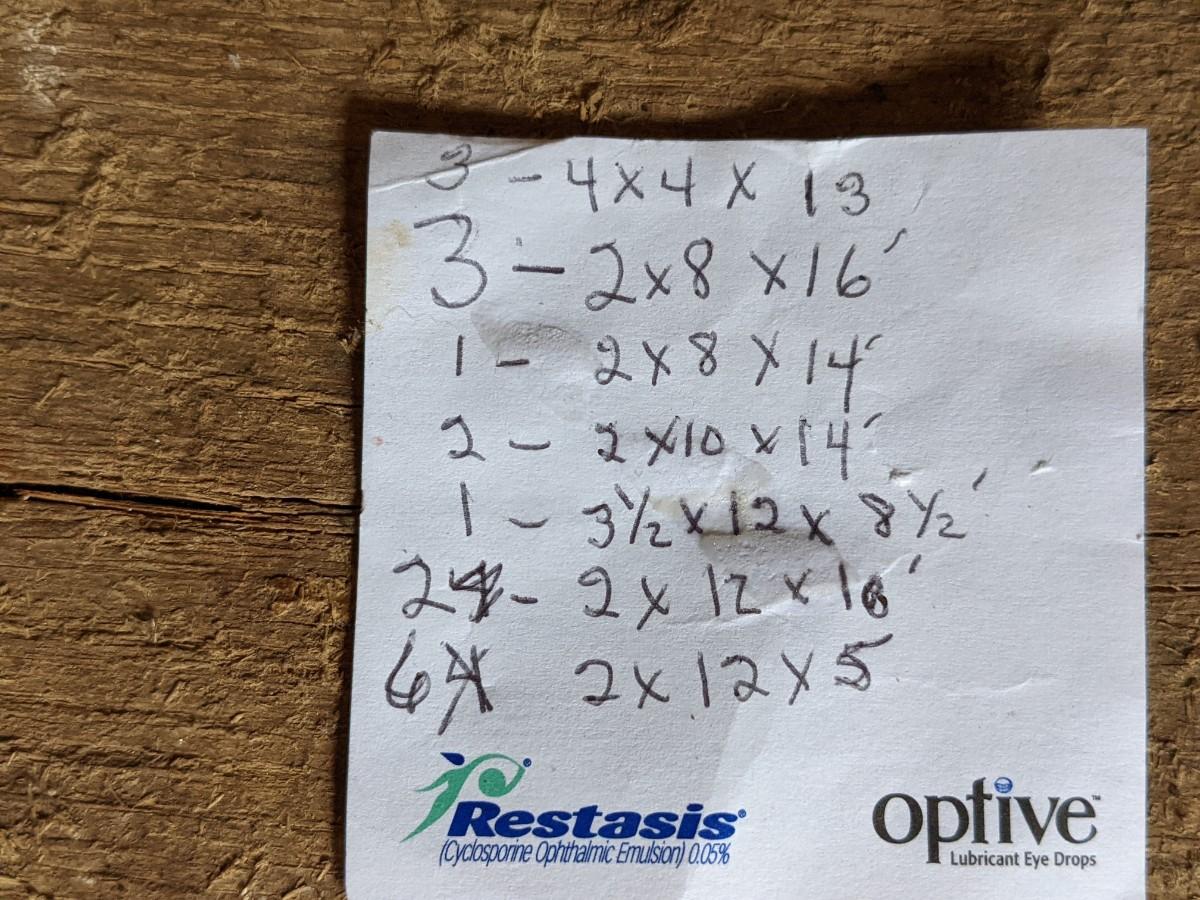 3 - 4 x 4 x 13
3 - 2 x 8 x 16'
1 - 2 x 8 x 14'
2 - 2 x 10 x 14'
1 - 3 1/2 x 12 x 8 1/2'
2 - 2 x 12 x 16'
6 2 x 12 x 5
Restasis®
(Cyclosporine Ophthalmic Emulsion) 0.05%
optive™
Lubricant Eye Drops